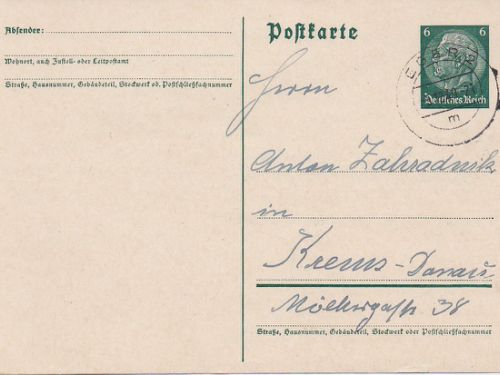 Absender:
Wohnort, auch Zustell- oder Leitpostamt
Straße, Hausnummer, Gebäudeteil, Stockwerk od. Postschließfachnummer
Postkarte
6 6
Deutsches Reich
Herrn
Anton Zahradnik
in
Krems-Donau
Straße, Hausnummer, Gebäudeteil, Stockwerk oder Postschließfachnummer
38